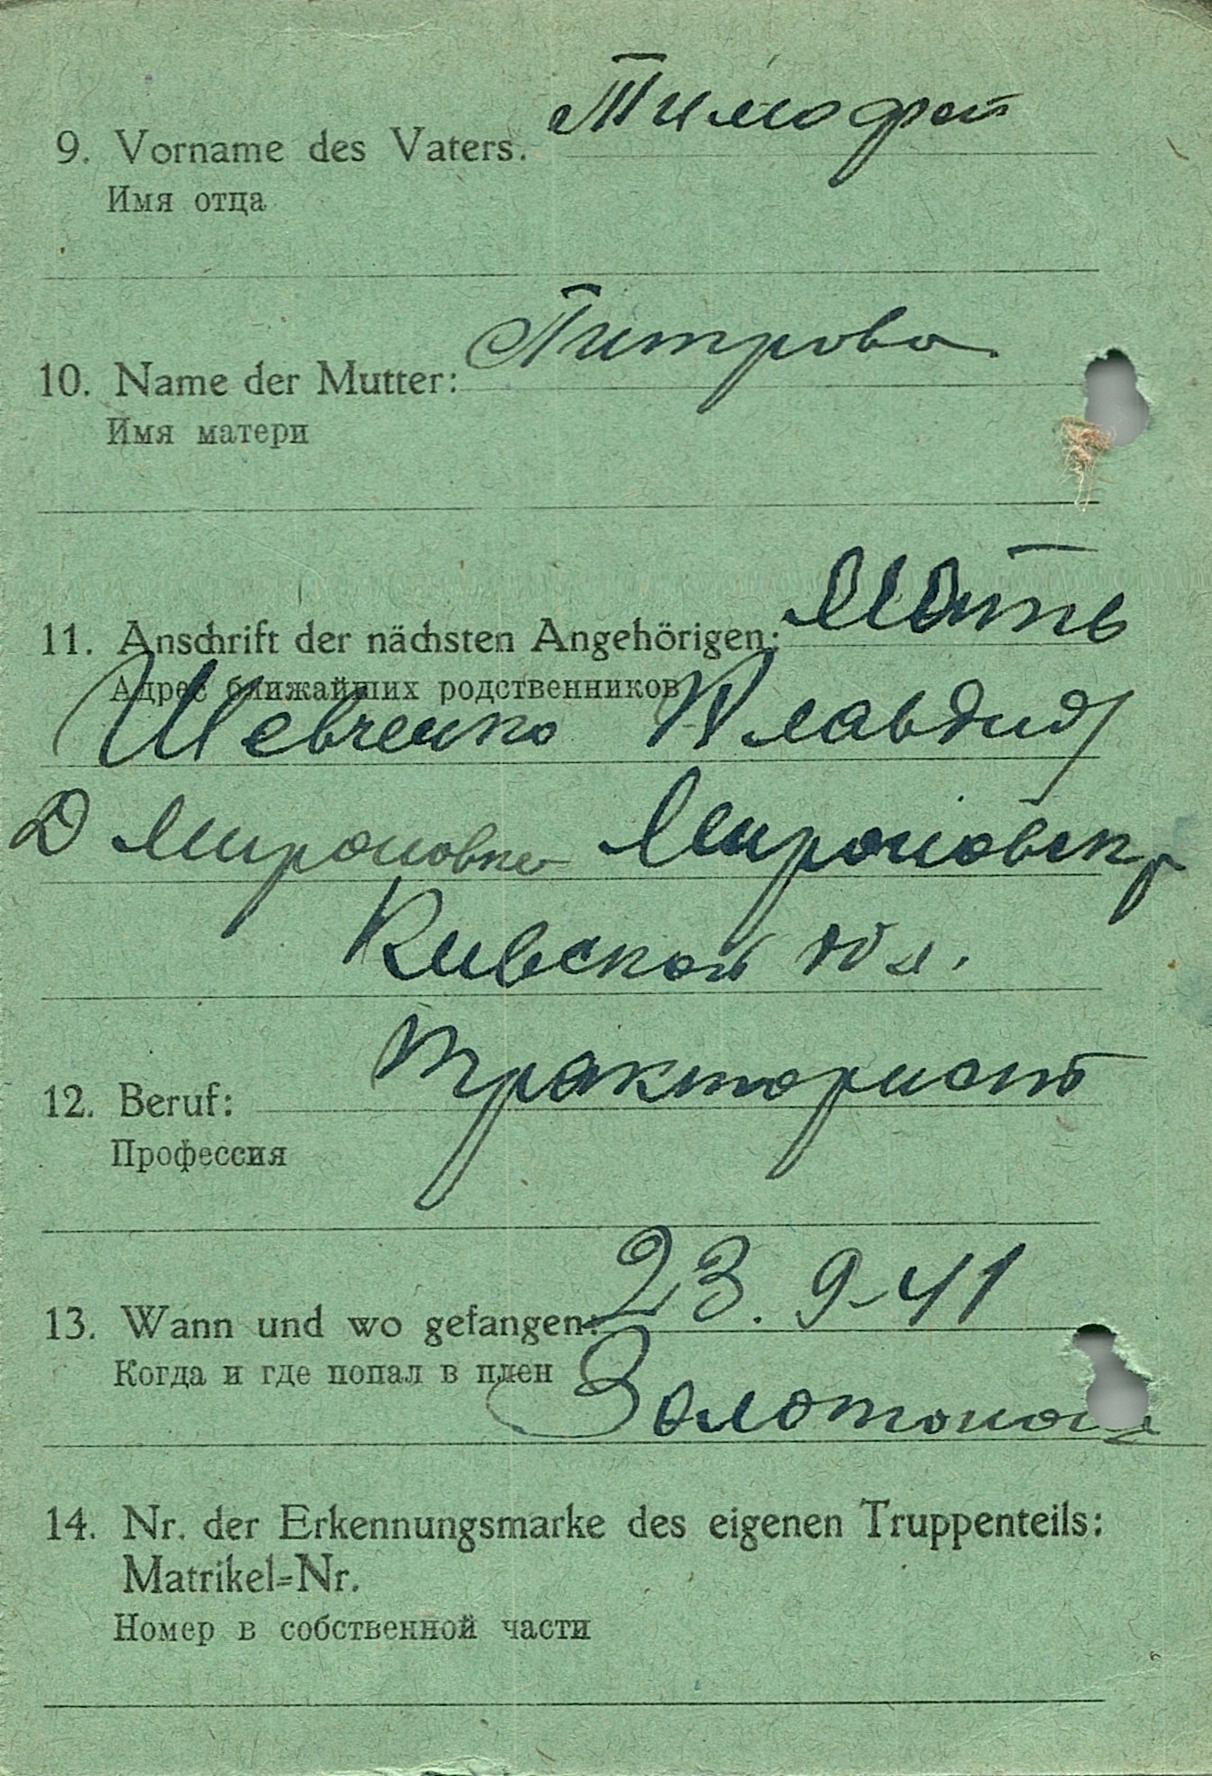 9. Vorname des Vaters. Тимофей
Имя отца
10. Name der Mutter: Питрова
Имя матери
11. Anschrift der nächsten Angehörigen: Мать
Адрес ближайших родственников
Шевченко Клавдия
Д Мироновка Мироновск р
Кивской обл.
12. Beruf: тракторист
Профессия
13. Wann und wo gefangen: 23. 9-41
Когда и где попал в плен Золотоноша
14. Nr. der Erkennungsmarke des eigenen Truppenteils:
Matrikel-Nr.
Номер в собственной части